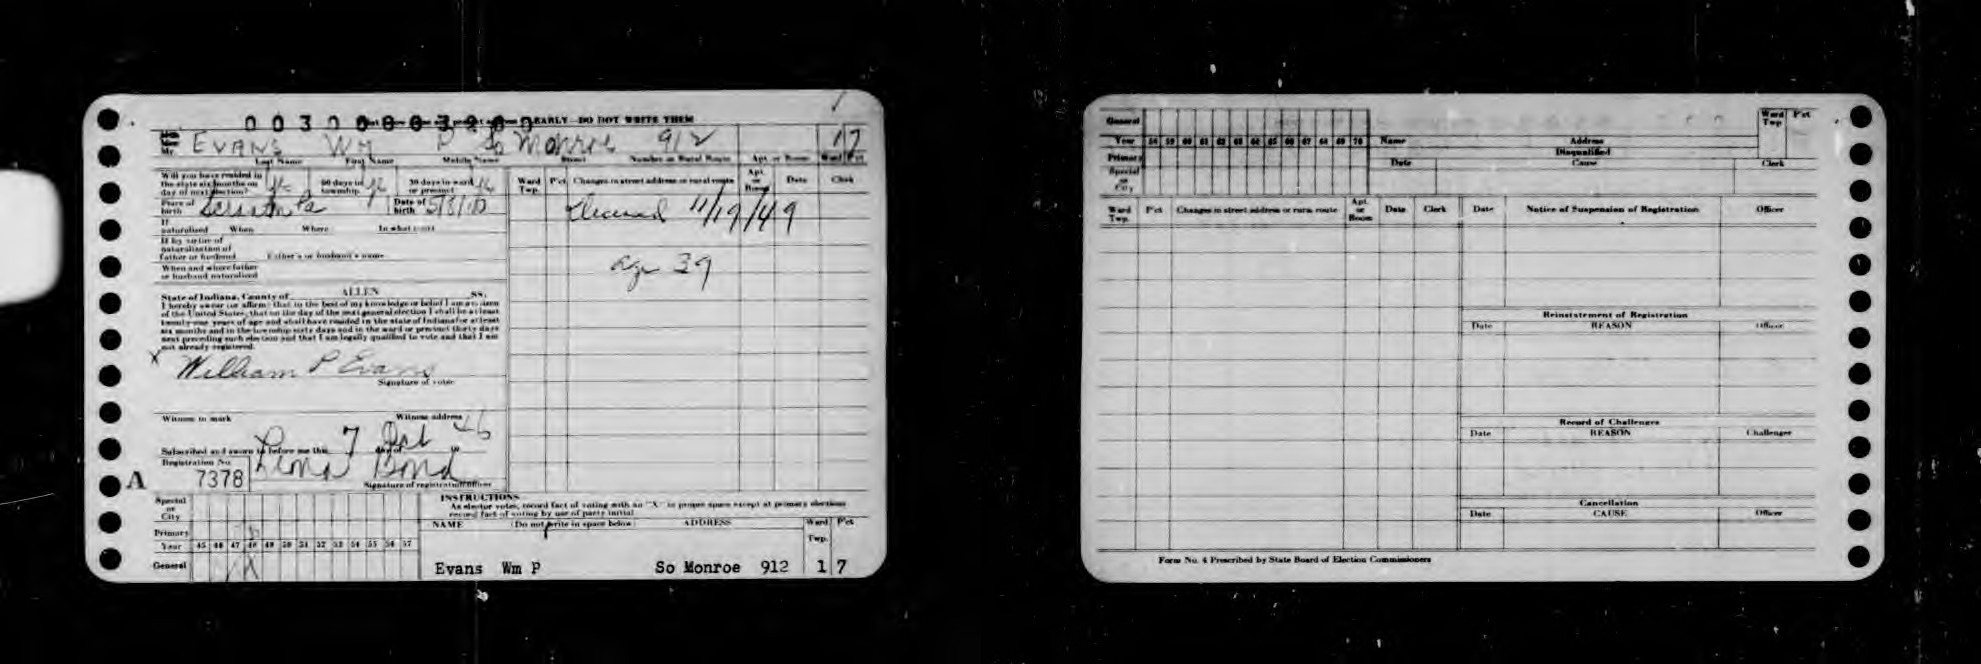 EARLY DO NOT WRITE THEM
Evans Wm P So Monroe 912 1 7
Last Name First Name Middle Name Street Number or Rural Route Apt. or Room Ward Pct
Will you have resided in the state six months on day of next election? 60 days in township 30 days in ward or precinct
Ward Twp. P'ct Changes in street address or rural route Apt. or Room Date Clerk
Place of birth Scranton Pa Date of birth
Deceased 11/19/49
If naturalized When Where In what court
If by virtue of naturalization of father or husband Father's or husband's name
age 39
When and where father or husband naturalized
State of Indiana, County of ALLEN SS.
I hereby swear (or affirm) that to the best of my knowledge or belief I am a citizen
of the United States; that on the day of the next general election I shall be at least
twenty-one years of age and shall have resided in the state of Indiana for at least
six months and in the township sixty days and in the ward or precinct thirty days
next preceding such election and that I am legally qualified to vote and that I am
not already registered.
X William P Evans
Signature of voter
Witness to mark Witness address
Subscribed and sworn to before me this 7 day of Oct 19 46
Registration No. Lena Bond
A 7378 Signature of registration officer
INSTRUCTIONS
As elector votes, record fact of voting with an "X" in proper space except at primary elections
record fact of voting by use of party initial
Special or City
Primary
Year 45 46 47 48 49 50 51 52 53 54 55 56 57
General
NAME (Do not write in space below) ADDRESS Ward Twp. P'ct
Evans Wm P So Monroe 912 1 7
General
Year 58 59 60 61 62 63 64 65 66 67 68 69 70
Primary
Special or City
Name Address Ward Twp. P'ct
Disqualified
Date Cause Clerk
Ward Twp. P'ct Changes in street address or rural route Apt. or Room Date Clerk Date Notice of Suspension of Registration Officer
Reinstatement of Registration
Date REASON Officer
Record of Challenges
Date REASON Challenger
Cancellation
Date CAUSE Officer
Form No. 4 Prescribed by State Board of Election Commissioners